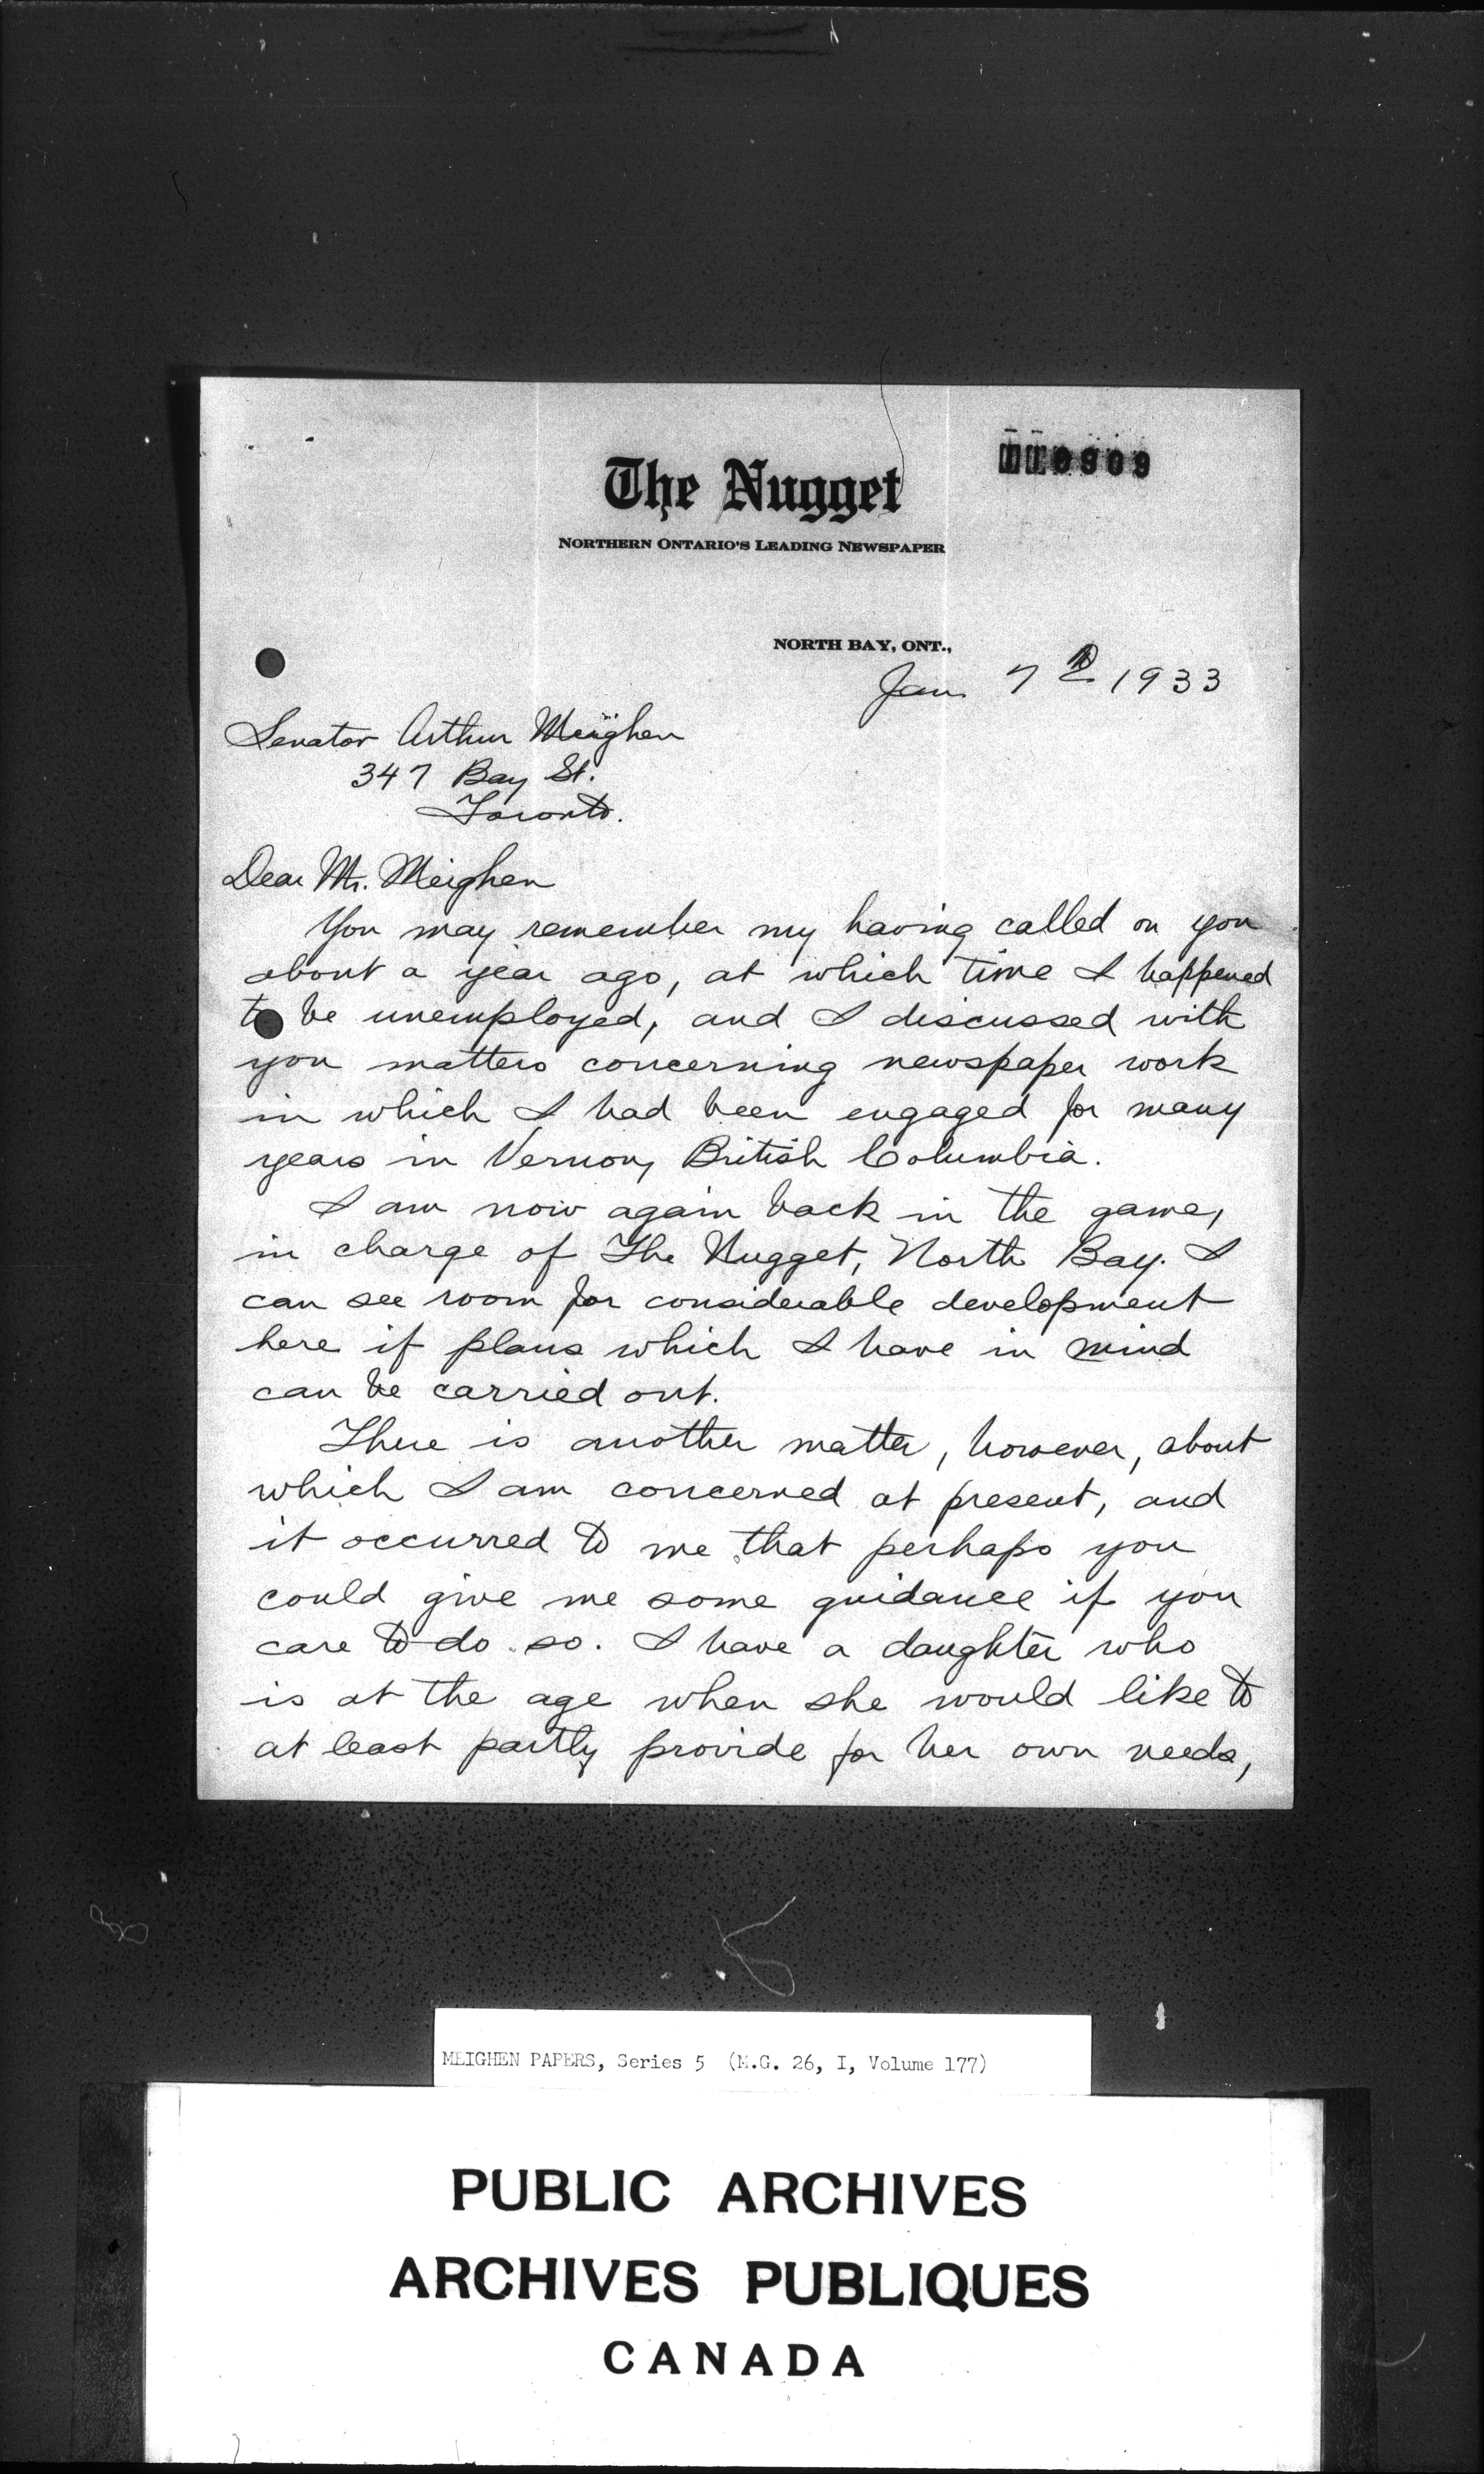 The Nugget
NORTHERN ONTARIO'S LEADING NEWSPAPER
NORTH BAY, ONT.,
Jan 7th 1933
Senator Arthur Meighen
347 Bay St.
Toronto.
Dear Mr. Meighen
You may remember my having called on you
about a year ago, at which time I happened
to be unemployed, and I discussed with
you matters concerning newspaper work
in which I had been engaged for many
years in Vernon, British Columbia.
I am now again back in the game,
in charge of The Nugget, North Bay. I
can see room for considerable development
here if plans which I have in mind
can be carried out.
There is another matter, however, about
which I am concerned at present, and
it occurred to me that perhaps you
could give me some guidance if you
care to do so. I have a daughter who
is at the age when she would like to
at least partly provide for her own needs,
MEIGHEN PAPERS, Series 5 (M.G. 26, I, Volume 177)
PUBLIC ARCHIVES
ARCHIVES PUBLIQUES
CANADA